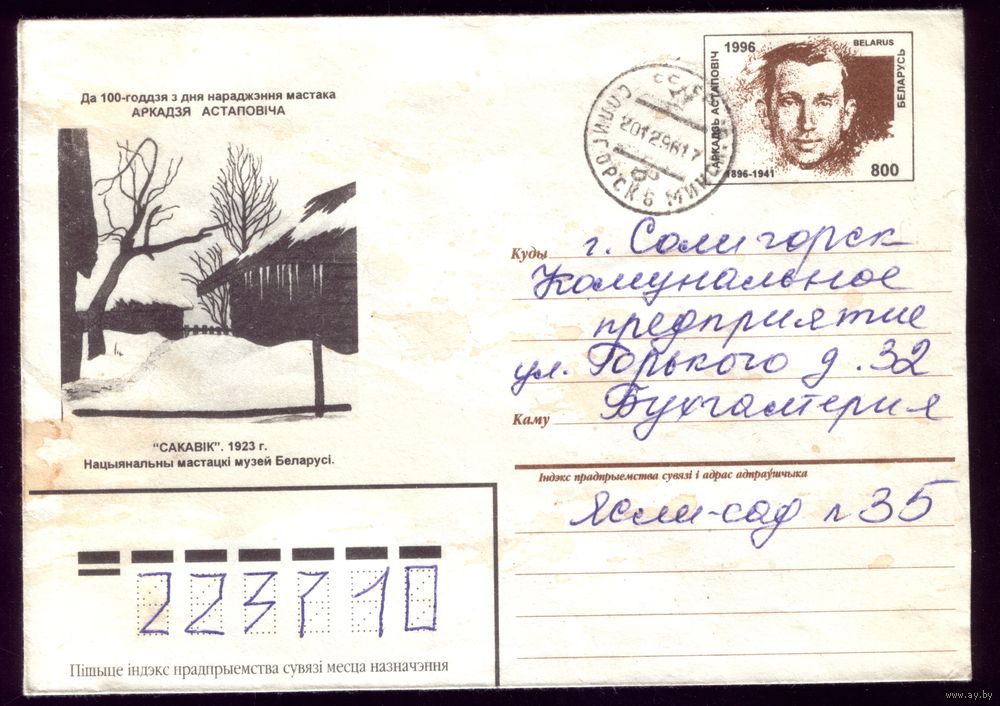 Да 100-годдзя з дня нараджэння мастака
АРКАДЗЯ АСТАПОВІЧА
"САКАВІК". 1923 г.
Нацыянальны мастацкі музей Беларусі.
1996
BELARUS
БЕЛАРУСЬ
АРКАДЗЬ АСТАПОВІЧ
1896-1941
800
СССР
20129617
СОЛИГОРСК 6 МИНСК
Куды г. Солигорск
Комунальное
предприятие
ул. Горького д. 32
Каму Бухгалтерия
Індэкс прадпрыемства сувязі і адрас адпраўшчыка
Ясли-сад n 35
223710
Пішыце індэкс прадпрыемства сувязі месца назначэння
www.ay.by